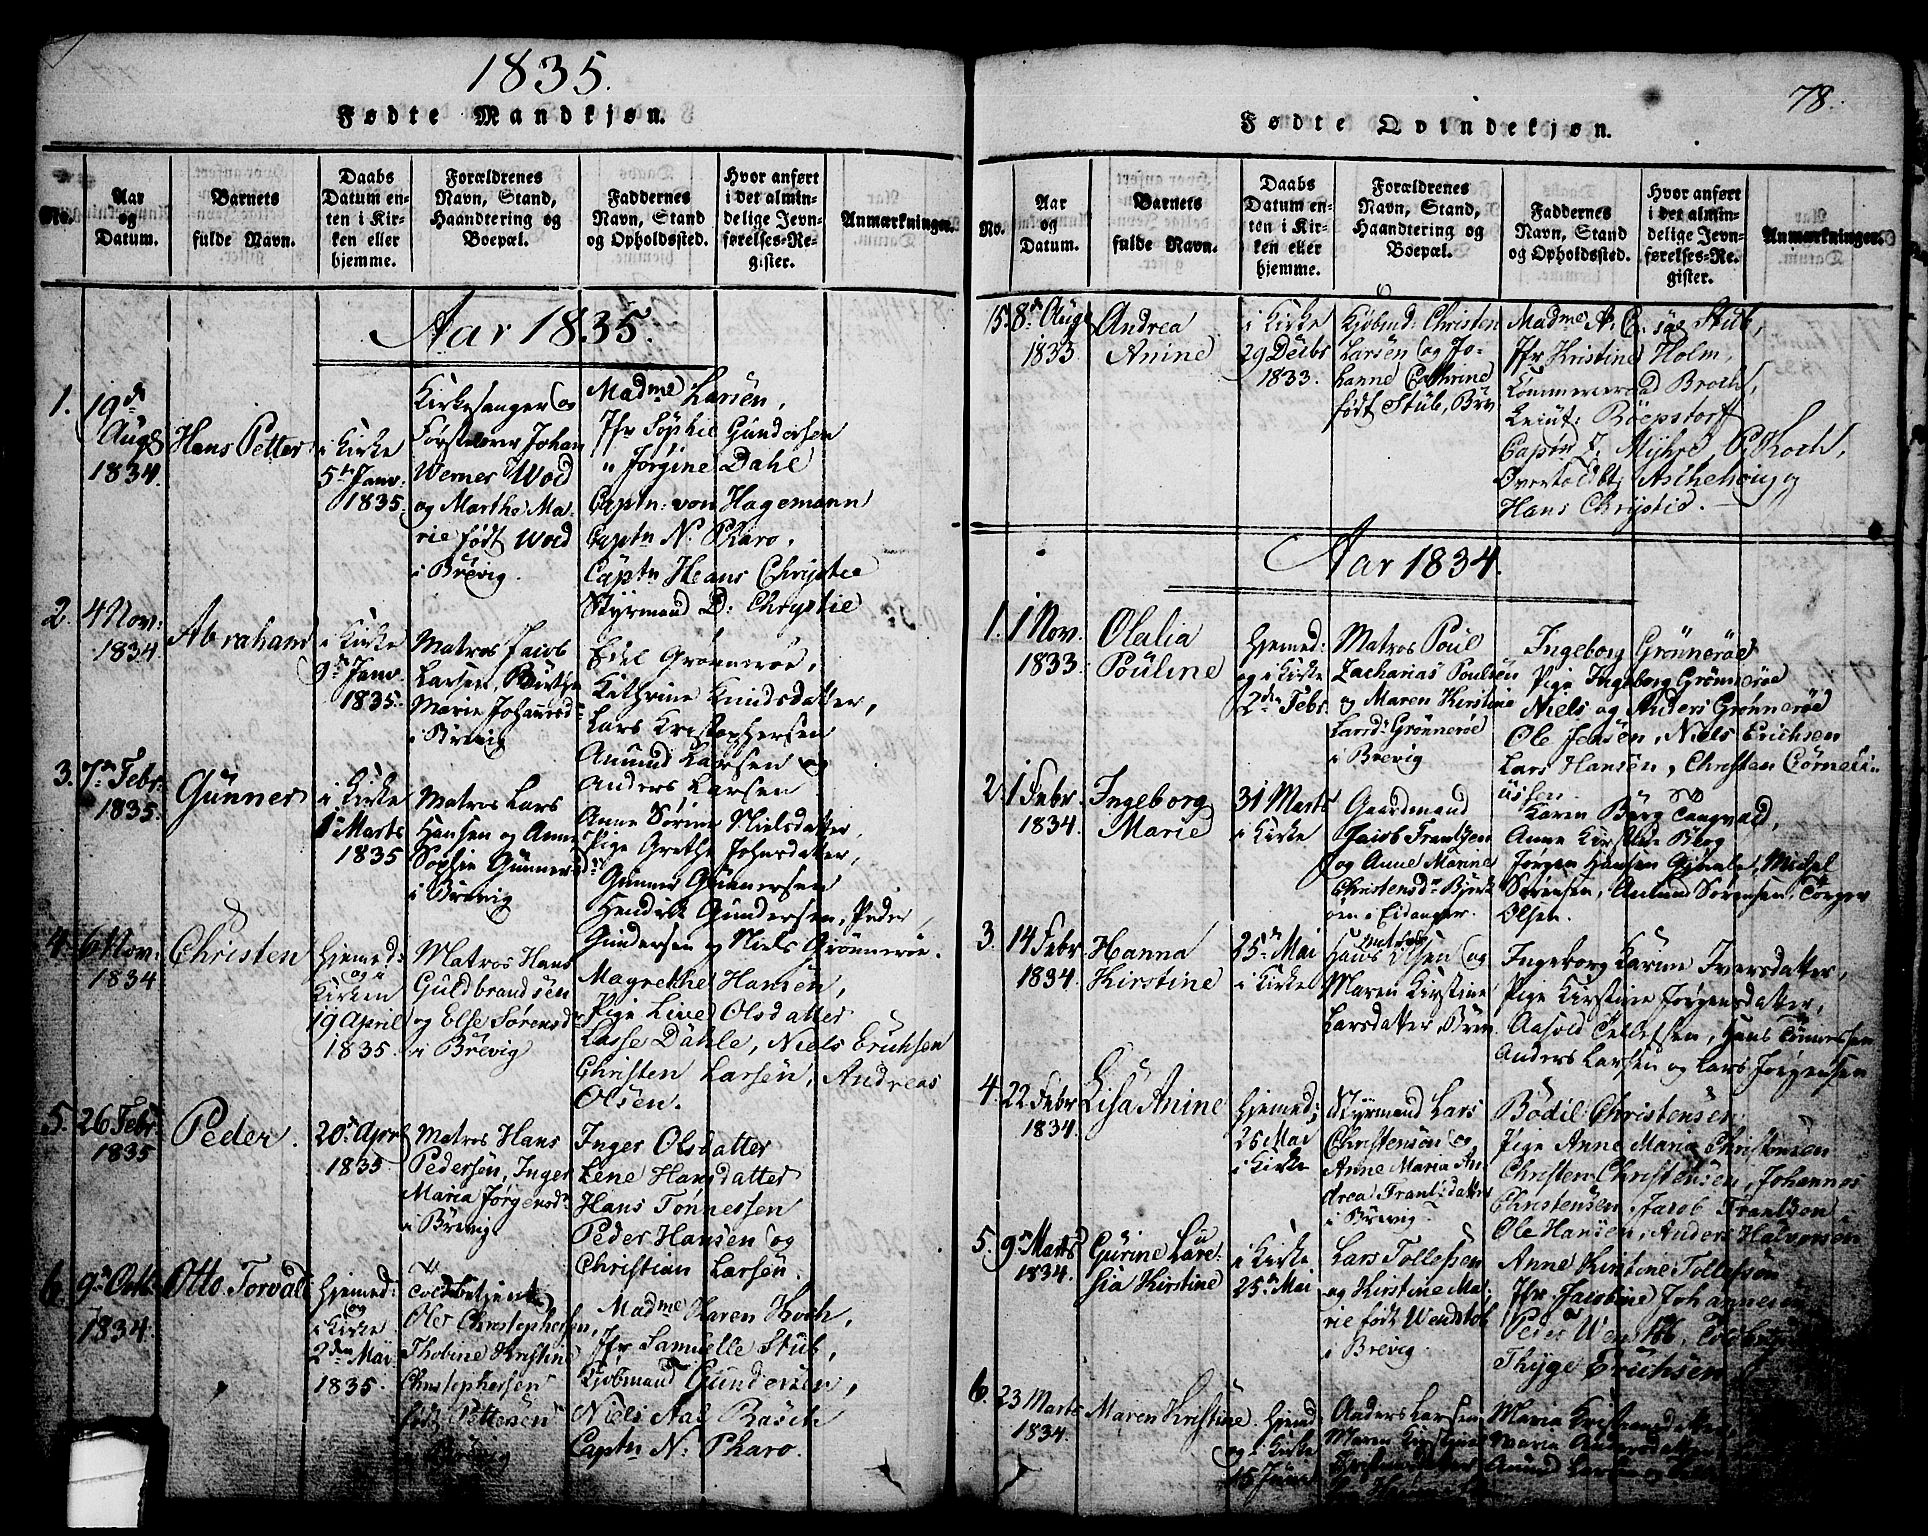 1835.
Fødte Mandkjøn.
No.
Aar
og
Datum.
Barnets
fulde Navn.
Daabs
Datum en-
ten i Kir-
ken eller
hjemme.
Forældrenes
Navn, Stand,
Haandtering og
Boepæl.
Faddernes
Navn, Stand
og Opholdssted.
Hvor anført
i det almin-
delige Jevn-
førelses-Re-
gister.
Anmærkninger.
Aar 1835.
1.
19de
Aug
1834.
Hans Petter
i Kirke
5te Janv.
1835.
Kirkesanger og
Johan
Werner Wod
og Marthe Ma-
rie født Wod
i Brevig.
Madme Larsen,
Jfr Sophie Gundersen
" Jørgine Dahl
Captn: von Hagemann
Captn N: Pharo,
Captn Hans Chrystie
Styrmand D: Chrystie
2.
4 Nov:
1834.
Abraham
i Kirke
9de Janv
1835.
Matros Jacob
Larsen,
Marie Johannesd.
i Brevig
Edel Grønnerøe,
Kathrine Knudsdatter,
Lars Kristophersen
Amund Larsen og
Anders Larsen
3.
7de Febr:
1835.
Gunner
i Kirke
1te Marts
1835
Matros Lars
Hansen og Anne
Sophie Gunnersd:
i Brevig
Anne Sørine Nielsdatter,
Pige Grethe Johnsdatter,
Gunner Gunnersen
Hendrik Gundersen, Peder
Gundersen og Niels Grønnerøe.
4.
6 Nov:
1834
Christen
Hjemmed:
og i
Kirken
19 April
1835.
Matros Hans
Guldbrandsen
og Else Sørensd.
i Brevig
Magrethe Hansen,
Pige Live Olsdatter
Lasse Dahle, Niels Erichsen
Christen Larsen, Andreas
Olsen.
5.
26 Febr.
1835
Peder.
20de Apr
1835
Matros Hans
Pedersen, Inger
Maria Jørgensd.
i Brevig
Inger Olsdatter
Lene Hansdatter
Hans Tønnessen
Peder Hansen og
Christian Larsen.
6.
9de Octb
1834.
Otto Torvald
Hjemmed:
og
i Kirke
2den Mai
1835.
Toldbetjent
Ole Christophersen,
Thobine Kristine
Christophersen
født Pettersen
i Brevig
Madme Karen Koch,
Jfr Samuelle Stub,
Kjøbmand Gundersen,
Niels Aal Rasch
Captn N: Pharo.
78.
Fødte Qvindekjøn.
No.
Aar
og
Datum.
Barnets
fulde Navn.
Daabs
Datum en-
ten i Kir-
ken eller
hjemme.
Forældrenes
Navn, Stand,
Haandtering og
Boepæl.
Faddernes
Navn, Stand
og Opholdssted.
Hvor anført
i det almin-
delige Jevn-
førelses-Re-
gister.
Anmærkninger.
15.
8de Aug
1833
Andrea
Anine
i Kirke
29 Decbr
1833.
Kjøbmd: Christen
Larsen og Jo-
hanne Cathrine
født Stub, Brv
Madme A. C. Stub,
Jfr Kristine Holm,
Broch,
Leiut: Röepstorf
J. Myhre, P. Koch,
Overtoldbtj Aschehoug og
Hans Chrystie.
Aar 1834.
1.
1 Nov.
1833.
Olalia
Pouline
Hjemmed:
og i Kirke
2den Febr.
Matros Poul
Zacharias Poulsen
og Maren Kirstine
Larsd: Grønnerøe
i Brevig
Ingeborg Grönnerøe
Pige Ingeborg Grønnerøe
Niels og Anders Grønnerøe
Ole Jensen, Niels Erichsen
Lars Hansen, Christen Corneli-
ussen.
2.
1 Febr
1834.
Ingeborg
Marie
31 Marts
i Kirke
Gaardmand
Jacob Frantzen
og Anne Marine
Christensdr Bjerk
øen i Eidanger.
Karen Børg Tangvald,
Anne Kirstine Berg
Jørgen Hansen Michel
Sørensen, Amund Sørensen, Torger
Olsen.
3.
14 Febr
1834.
Hanna
Kirstine
25de Mai
i Kirke
Matros
Hans Olsen og
Maren Kirstine
Larsdatter, Brev
Ingeborg Karine Iversdatter,
Pige Kirstine Jørgensdatter,
Aasold Tellefsen, Hans Tønnessen
Anders Larsen og Lars Jørgensen
4.
22 Febr
1834.
Lisa Anine
Hjemmed;
26 Mai
i Kirke
Styrmand Lars
Christensen og
Anne Maria An
drea Frantsdatter
i Brevig.
Bodil Christensen
Pige Anne Maria Christensen
Christen Christensen, Johannes
Christensen, Jacob Frantsen
Ole Hansen, Anders Halvorsen
5.
9de Marts
1834.
Gurine Lau
sia Kirstine
i Kirke
25de Mai
Lars Tollefsen
og Kirstine Ma-
rie født Wenstøb
i Brevig
Anne Kirstine Tollefsen
Jfr Jacobine Johannesen
Peder Wenstøb, Toldbetj
Thyge Erichsen
6.
23 Marts
1834.
Maren Kristine.
Hjemd:
og i Kirke
15 Juni
Anders Larsen
Maren Kirstine
Maria
Maria Andersdatter
Amund Larsen og